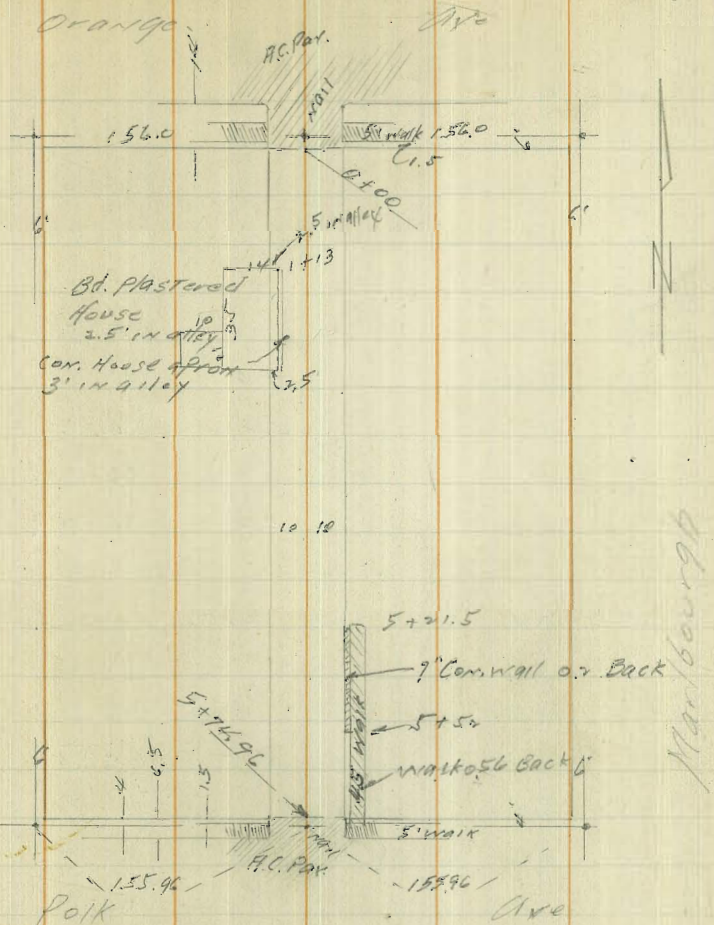 Orange Ave
A.C. Pav.
14'
Nail
156.0
5' walk 156.0
1.5
0+00
6'
6'
.5 in alley
14 1+13
Bd. Plastered
House
2.5' in alley
10
35
Con. House apron
3' in alley
2.5
N
10 10
Marlbourgh
5+21.5
9" Con. wall 0.2 Back
5+52
5+76.96
4.5' walk
Walk 0.56 Back
6'
6'
4
6.5
1.5
Nail
5' walk
4'
A.C. Pav.
155.96
155.96
Polk Ave